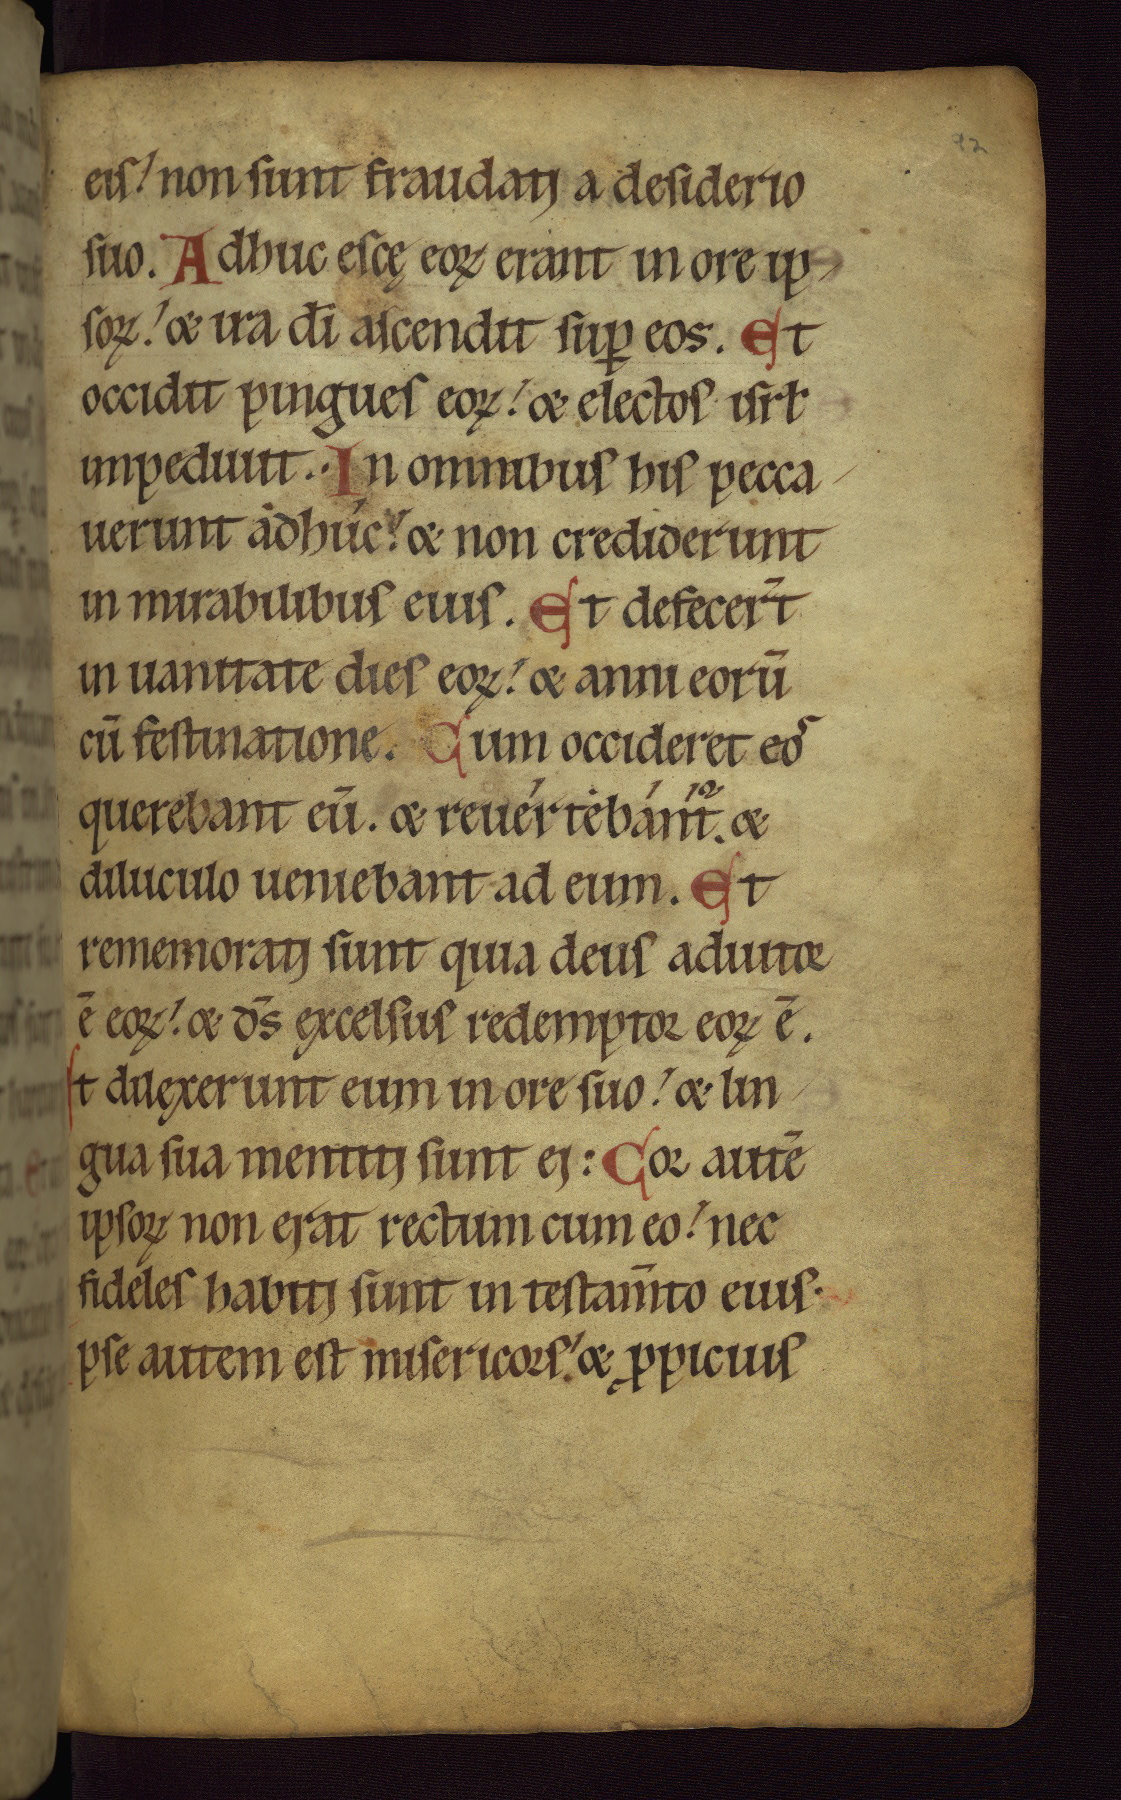 92
eis! non sunt fraudatj a desiderio
suo. Adhuc escę eoꝝ erant in ore ip-
soꝝ! & ira d̄i ascendit sup̱ eos. Et
occidit pingues eoꝝ! & electos isrł
inpediuit. In omnibus his pecca-
uerunt adhúc! & non crediderunt
in mirabilibus eius. Et defecer̄t
in uanitate dies eoꝝ! & anni eorū
cū festinatione. Cum occideret eos
querebant eū. & reuértebánt᷑. &
diluculo ueniebant ad eum. Et
rememoratj sunt quia deus adiutor
ē eoꝝ! & d̄s excelsus redemptor eoꝝ ē.
Et dilexerunt eum in ore suo! & lin-
gua sua mentitj sunt ej: Cor autē
ipsoꝝ non erat rectum cum eo! nec
fideles habitj sunt in testam̄to eius.
pse autem est misericors! & ꝓpicius